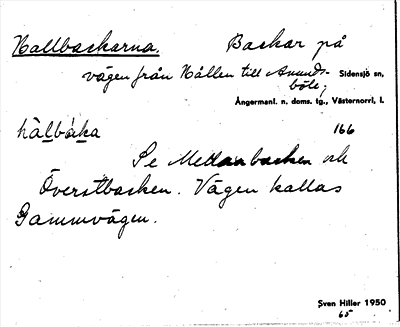 Hallbackarna. Backar på
vägen från Hållen till Amunds-
böle, Sidensjö sn,
Ångermanl. n. doms. tg., Västernorrl. l.
hàlbáka 166
Se Mellanbacken och
Överstbacken. Vägen kallas
Gammvägen.
Sven Hiller 1950
65